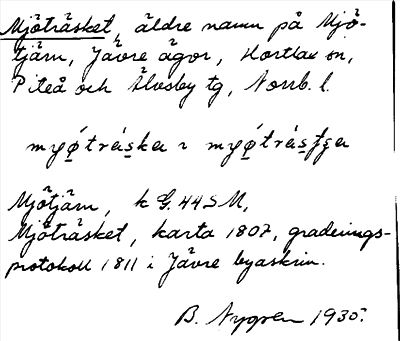 Mjöträsket, äldre namn på Mjö-
tjärn, Jävre ägor, Hortlax sn,
Piteå och Älvsby tg, Norrb. l.
myǿtráska ı myǿträsʃʒa
Mjötjärn, k G. 44 S M,
Mjöträsket, karta 1807, graderings-
protokoll 1811 i Jävre byaskrin.
B. Nygren 1930.